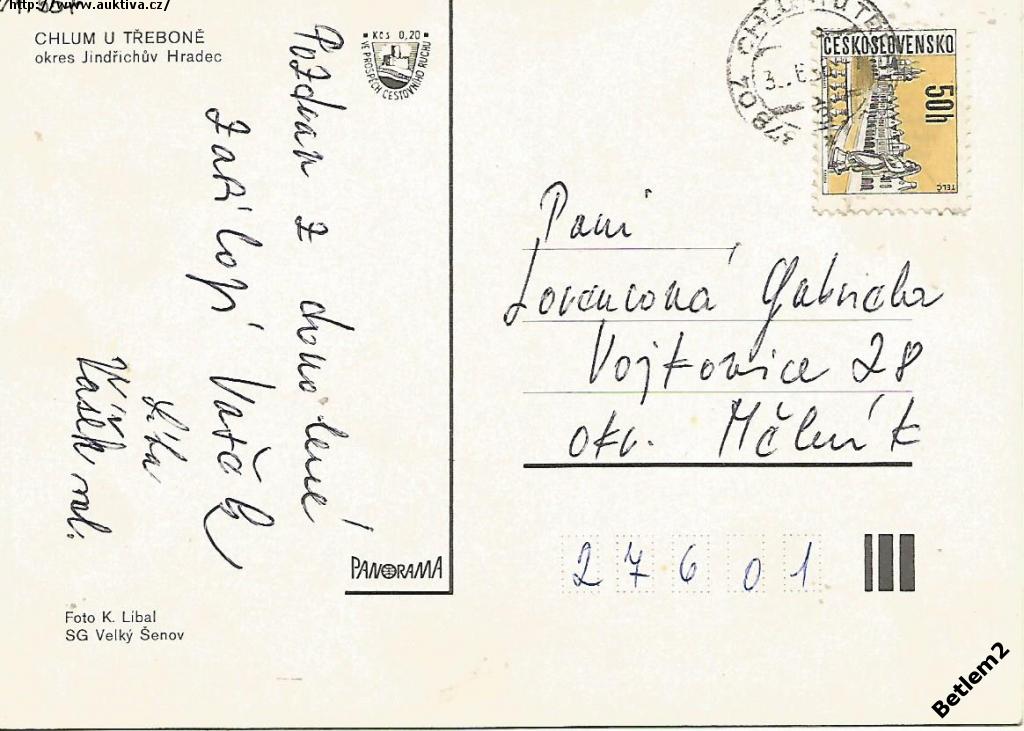 http://www.auktiva.cz/
CHLUM U TŘEBONĚ
okres Jindřichův Hradec
Kčs 0,20
VE PROSPĚCH CESTOVNÍHO RUCHU
Pozdrav z dovolené
Vašek
Líba
Vašek ml.
PANORAMA
Foto K. Líbal
SG Velký Šenov
378 04 CHLUM U TŘEB
ČESKOSLOVENSKO
50h
TELČ
Paní
Lorencová Gabriela
Vojkovice 28
okr. Mělník
27601
Betlem2